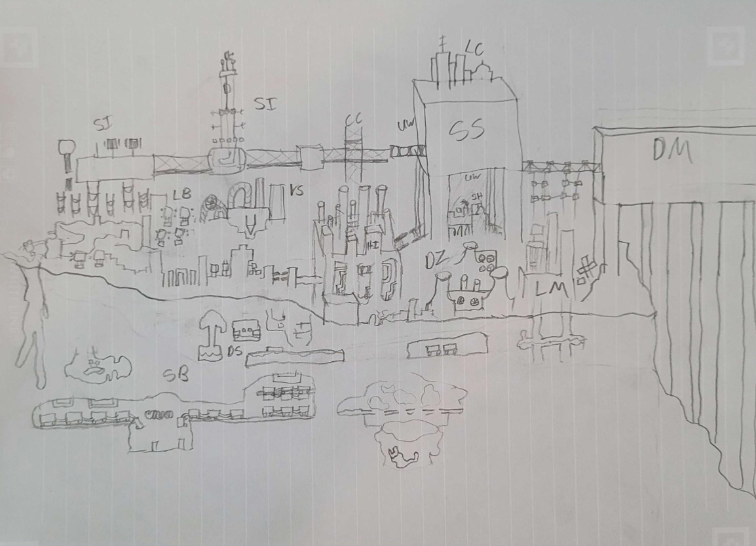 LC
SI
SI
CC
UW
SS
DM
LB
VS
UW
SH
HI
DZ
LM
DS
SB